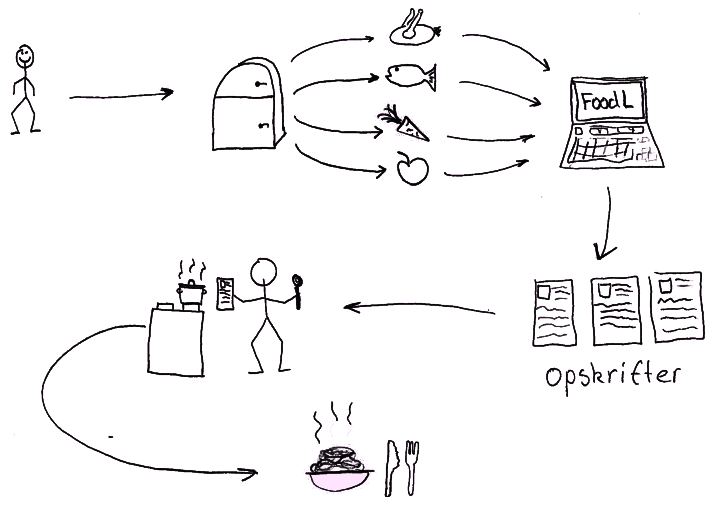 FoodL
opskrifter